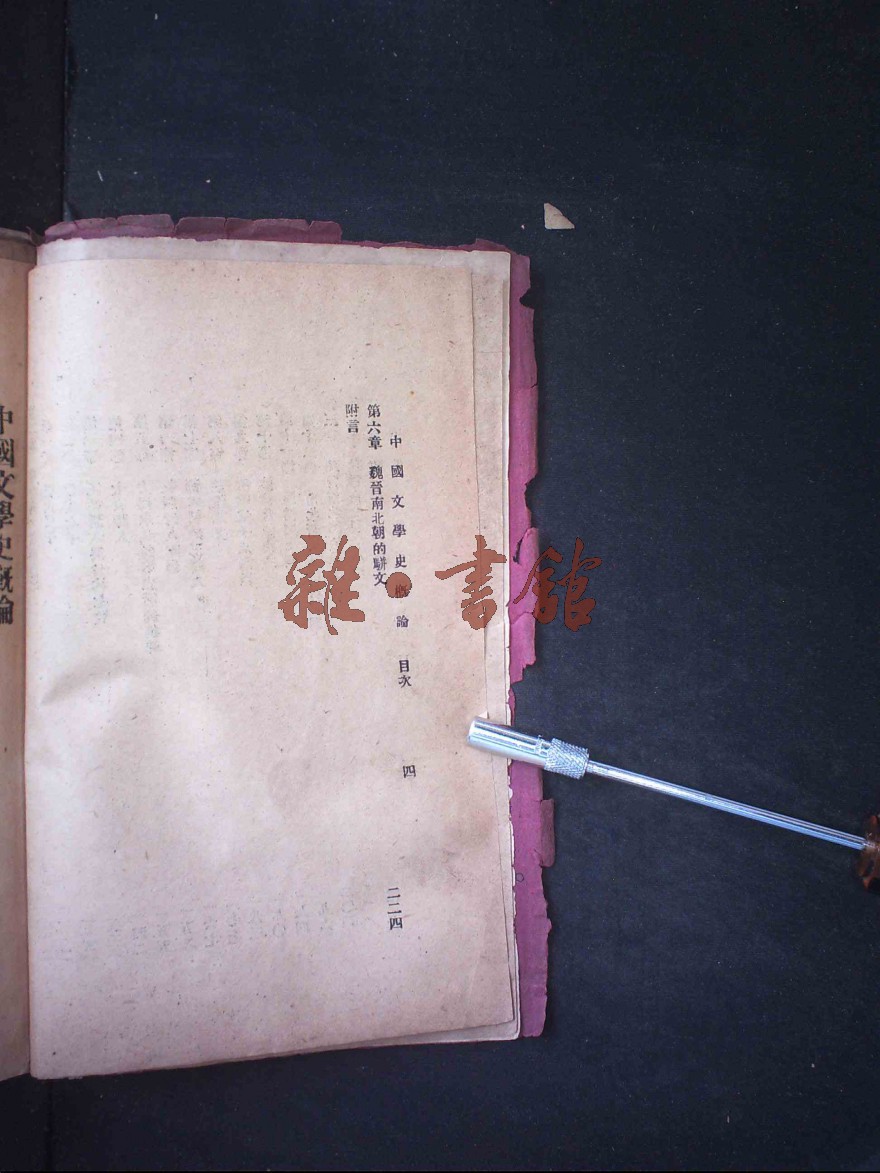 中國文學史概論 目次 四
第六章 魏晉南北朝的駢文 二二四
附言
中國文學史概論
雜·書館